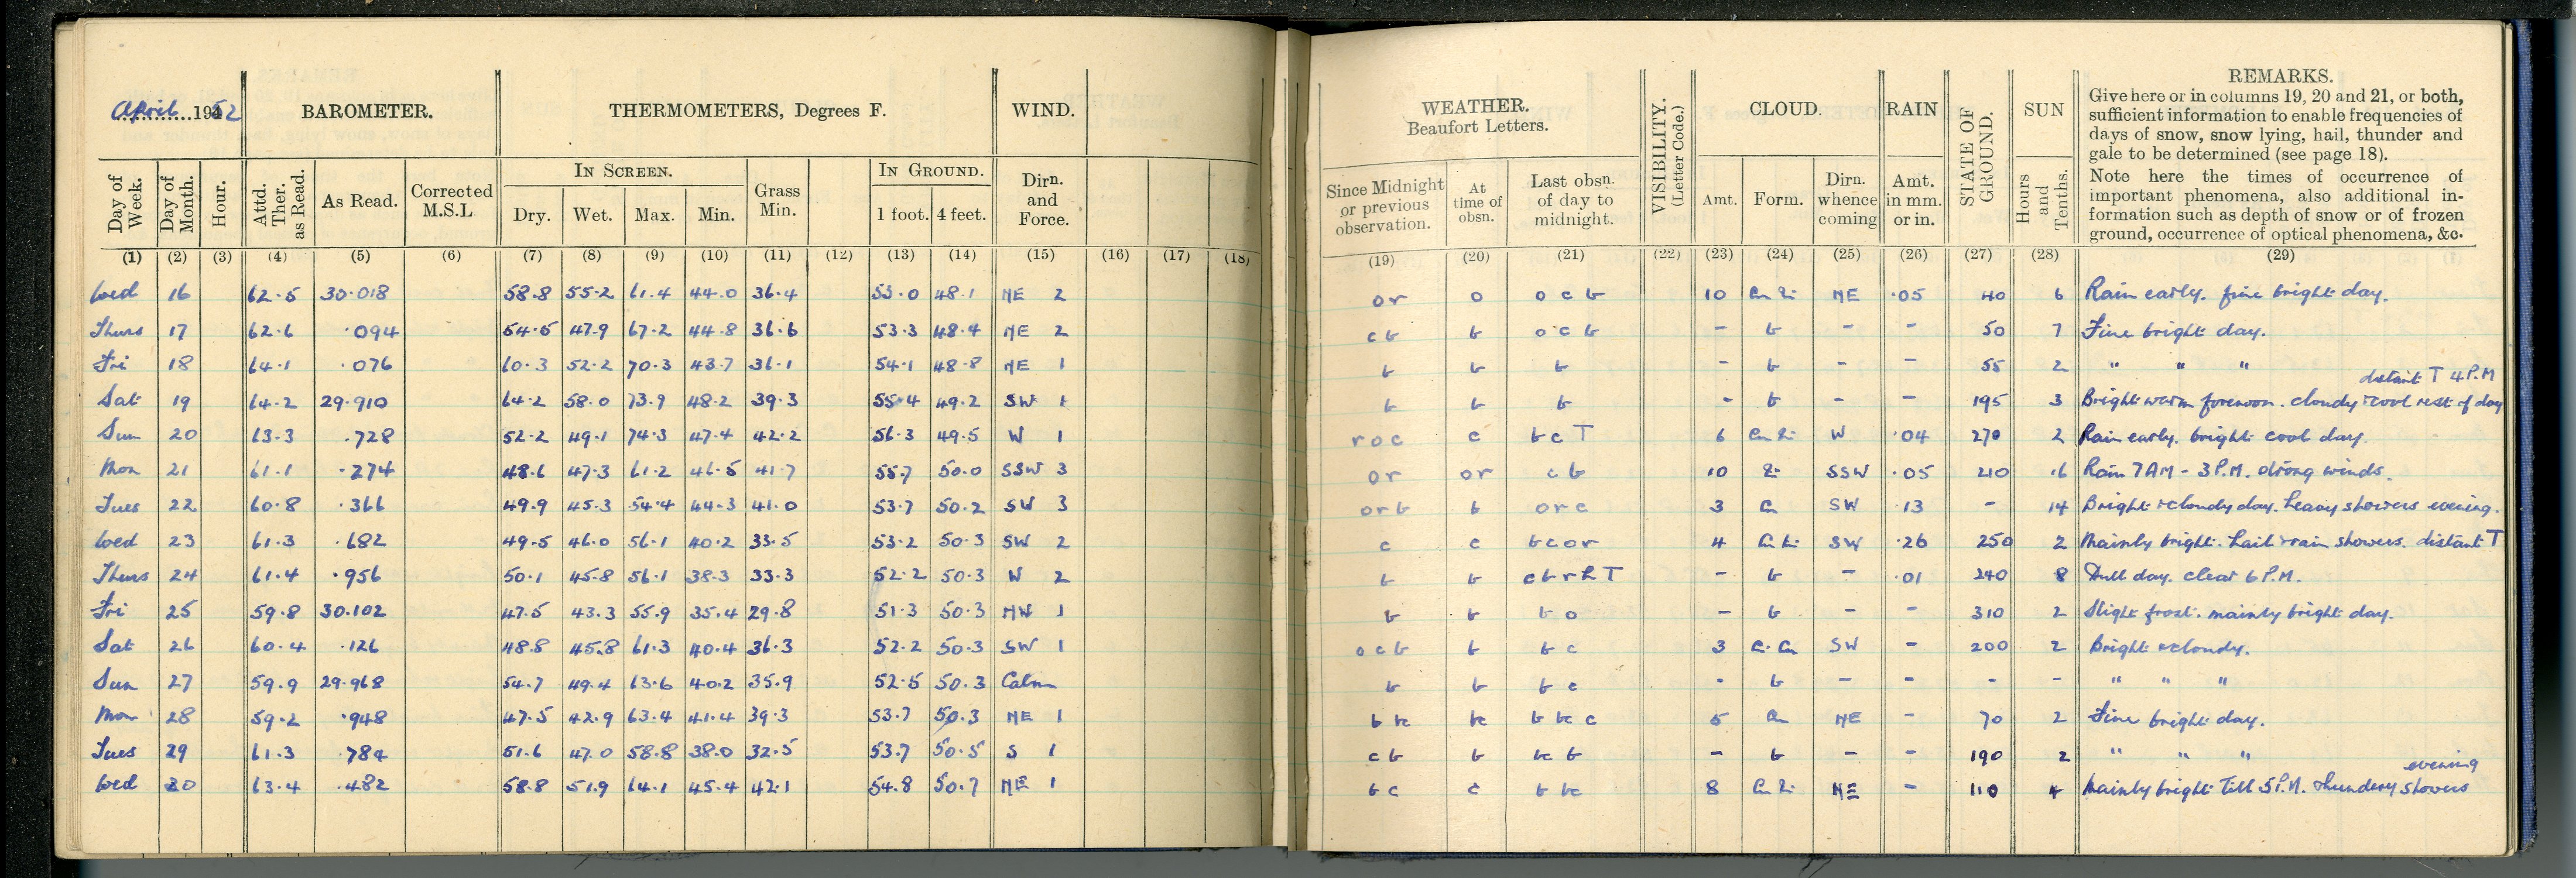 April 1952
BAROMETER.
THERMOMETERS, Degrees F.
WIND.
WEATHER.
Beaufort Letters.
VISIBILITY.
(Letter Code.)
CLOUD.
RAIN
STATE OF
GROUND.
SUN
REMARKS.
Give here or in columns 19, 20 and 21, or both,
sufficient information to enable frequencies of
days of snow, snow lying, hail, thunder and
gale to be determined (see page 18).
Note here the times of occurrence of
important phenomena, also additional in-
formation such as depth of snow or of frozen
ground, occurrence of optical phenomena, &c.
Day of Week.
Day of Month.
Hour.
Attd. Ther. as Read.
As Read.
Corrected M.S.L.
IN SCREEN.
Dry. Wet. Max. Min.
Grass Min.
IN GROUND.
1 foot. 4 feet.
Dirn. and Force.
Since Midnight or previous observation.
At time of obsn.
Last obsn. of day to midnight.
Amt. Form. Dirn. whence coming
Amt. in mm. or in.
Hours and Tenths.
(1) (2) (3) (4) (5) (6) (7) (8) (9) (10) (11) (12) (13) (14) (15) (16) (17) (18) (19) (20) (21) (22) (23) (24) (25) (26) (27) (28) (29)
Wed 16 62.5 30.018 58.8 55.2 61.4 44.0 36.4 53.0 48.1 NE 2 or o o c b 10 NE .05 40 6 Rain early. fine bright day.
Thurs 17 62.6 .094 54.5 47.9 67.2 44.8 36.6 53.3 48.4 NE 2 c b b o c b - b - - 50 7 Fine bright day.
Fri 18 64.1 .076 60.3 52.2 70.3 43.7 36.1 54.1 48.8 NE 1 b b b - b - - 55 2 " " "
distant T 4 P.M
Sat 19 64.2 29.910 64.2 58.0 73.9 48.2 39.3 55.4 49.2 SW 1 b b b - b - - 195 3 Bright warm forenoon. cloudy & cool rest of day
Sun 20 63.3 .728 52.2 49.1 74.3 47.4 42.2 56.3 49.5 W 1 r o c c b c T 6 W .04 270 2 Rain early. bright cool day.
Mon 21 61.1 .274 48.6 47.3 61.2 46.5 41.7 55.7 50.0 SSW 3 or or c b 10 SSW .05 210 16 Rain 7 AM - 3 P.M. strong winds.
Tues 22 60.8 .366 49.9 45.3 54.4 44.3 41.0 53.7 50.2 SW 3 o r b b o r c 3 Cu SW .13 - 14 Bright & cloudy day. heavy showers evening.
Wed 23 61.3 .682 49.5 46.0 56.1 40.2 33.5 53.2 50.3 SW 2 c c b c o r 4 SW .26 250 2 Mainly bright. hail & rain showers. distant T
Thurs 24 61.4 .956 50.1 45.8 56.1 38.3 33.3 52.2 50.3 W 2 b b c b r h T - b - .01 240 8 Dull day. clear 6 P.M.
Fri 25 59.8 30.102 47.5 43.3 55.9 35.4 29.8 51.3 50.3 NW 1 b b b o - b - - 310 2 Slight frost. mainly bright day.
Sat 26 60.4 .126 48.8 45.8 61.3 40.4 36.3 52.2 50.3 SW 1 o c b b b c 3 SW - 200 2 Bright & cloudy.
Sun 27 59.9 29.968 54.7 49.4 63.6 40.2 35.9 52.5 50.3 Calm b b b c - b - - - - " " "
Mon 28 59.2 .948 47.5 42.9 63.4 41.4 39.3 53.7 50.3 NE 1 b bc bc b bc c 5 Cu NE - 70 2 Fine bright day.
Tues 29 61.3 .784 51.6 47.0 58.8 38.0 32.5 53.7 50.5 S 1 c b b bc b - b - - 190 2 " " "
evening
Wed 30 63.4 .482 58.8 51.9 64.1 45.4 42.1 54.8 50.7 NE 1 b c c b bc 8 NE - 110 4 Mainly bright till 5 P.M. thundery showers